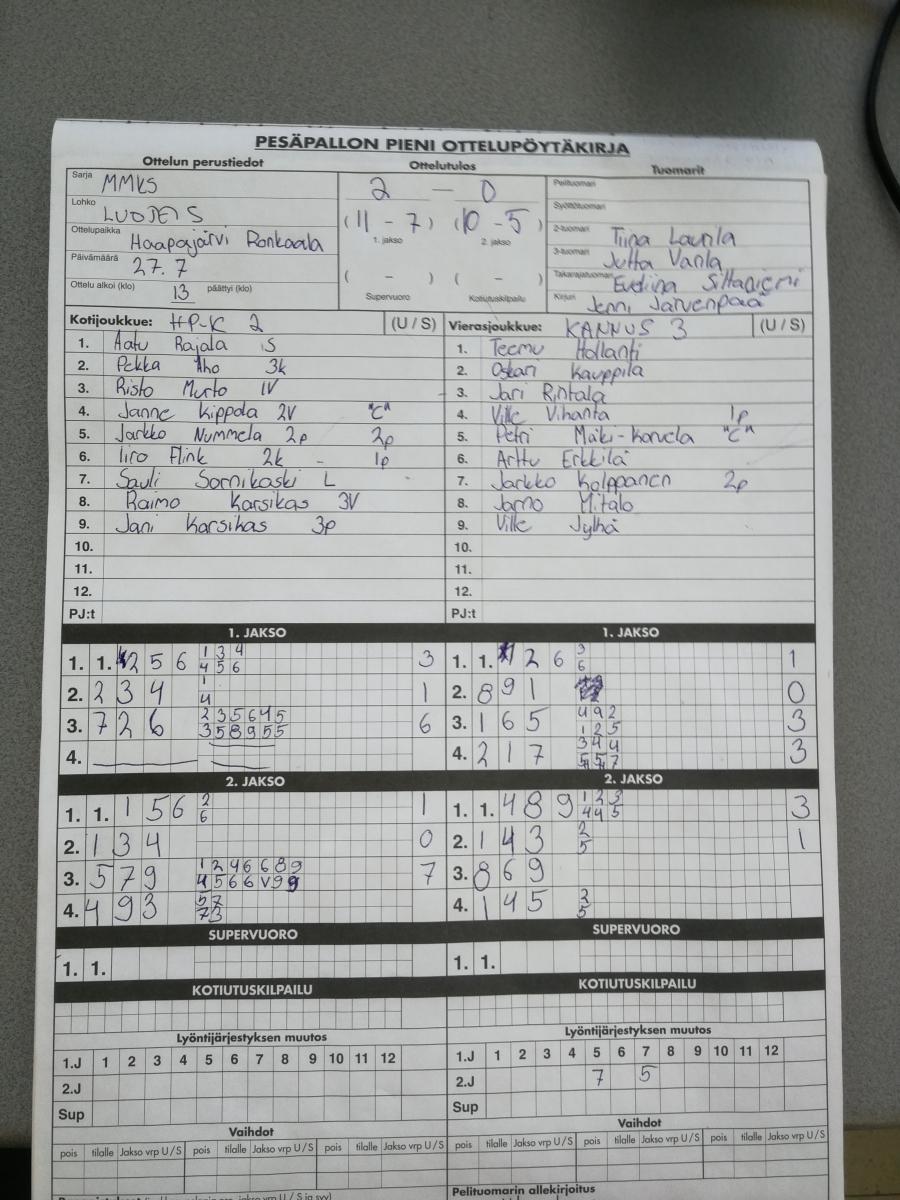 PESÄPALLON PIENI OTTELUPÖYTÄKIRJA
Ottelun perustiedot Ottelutulos Tuomarit
Sarja MMKS 2 — 0 Pelituomari
Lohko Syöttötuomari
( 11 - 7 ) ( 10 - 5 )
Ottelupaikka Haapajärvi Ronkaala 1. jakso 2. jakso 2-tuomari Tiina Laurila
Päivämäärä 27.7 3-tuomari Jutta Vanla
( - ) ( - ) Takarajatuomari Eveliina
Ottelu alkoi (klo) 13 päättyi (klo) Supervuoro Kotiutuskilpailu Kirjuri Jenni Järvenpää
Kotijoukkue: HP-K 2 (U / S) Vierasjoukkue: KANNUS 3 (U / S)
1. Aatu Rajala S 1. Teemu Hollanti
2. Pekka Aho 3k 2. Oskari Kauppila
3. Risto Murto 1V 3. Jari Rintala
4. Janne Kippola 2V "C" 4. Ville Vihanta 1p
5. Jarkko Nummela 2p 2p 5. Petri Mäki-Korvela "C"
6. Iiro Flink 2k - 1p 6. Arttu Erkkilä
7. Sauli Sornikoski L 7. Jarkko Kolppanen 2p
8. Raimo Karsikas 3V 8. Jarno Mitalo
9. Jani Karsikas 3p 9. Ville Jylhä
10. 10.
11. 11.
12. 12.
PJ:t PJ:t
1. JAKSO 1. JAKSO
1. 1. 2 5 6 1 3 4 3 1. 1. 2 6 3 1
4 5 6 6
2. 2 3 4 1 1 2. 8 9 1 0
4
3. 7 2 6 2 3 5 6 4 5 6 3. 1 6 5 4 9 2 3
3 5 8 9 5 5 1 2 5
4. 4. 2 1 7 3 4 4 3
5 5 7
2. JAKSO 2. JAKSO
1. 1. 1 5 6 2 1 1. 1. 4 8 9 1 2 3 3
6 4 4 5
2. 1 3 4 0 2. 1 4 3 2 1
5
3. 5 7 9 1 2 4 6 6 8 9 7 3. 8 6 9
4 5 6 6 V 9 9
4. 4 9 3 5 7 4. 1 4 5 3
7 3 5
SUPERVUORO SUPERVUORO
1. 1. 1. 1.
KOTIUTUSKILPAILU KOTIUTUSKILPAILU
Lyöntijärjestyksen muutos Lyöntijärjestyksen muutos
1.J 1 2 3 4 5 6 7 8 9 10 11 12 1.J 1 2 3 4 5 6 7 8 9 10 11 12
2.J 2.J 7 5
Sup Sup
Vaihdot Vaihdot
pois tilalle Jakso vrp U / S pois tilalle Jakso vrp U / S pois tilalle Jakso vrp U / S pois tilalle Jakso vrp U / S pois tilalle Jakso vrp U / S pois tilalle Jakso vrp U / S
Pelituomarin allekirjoitus